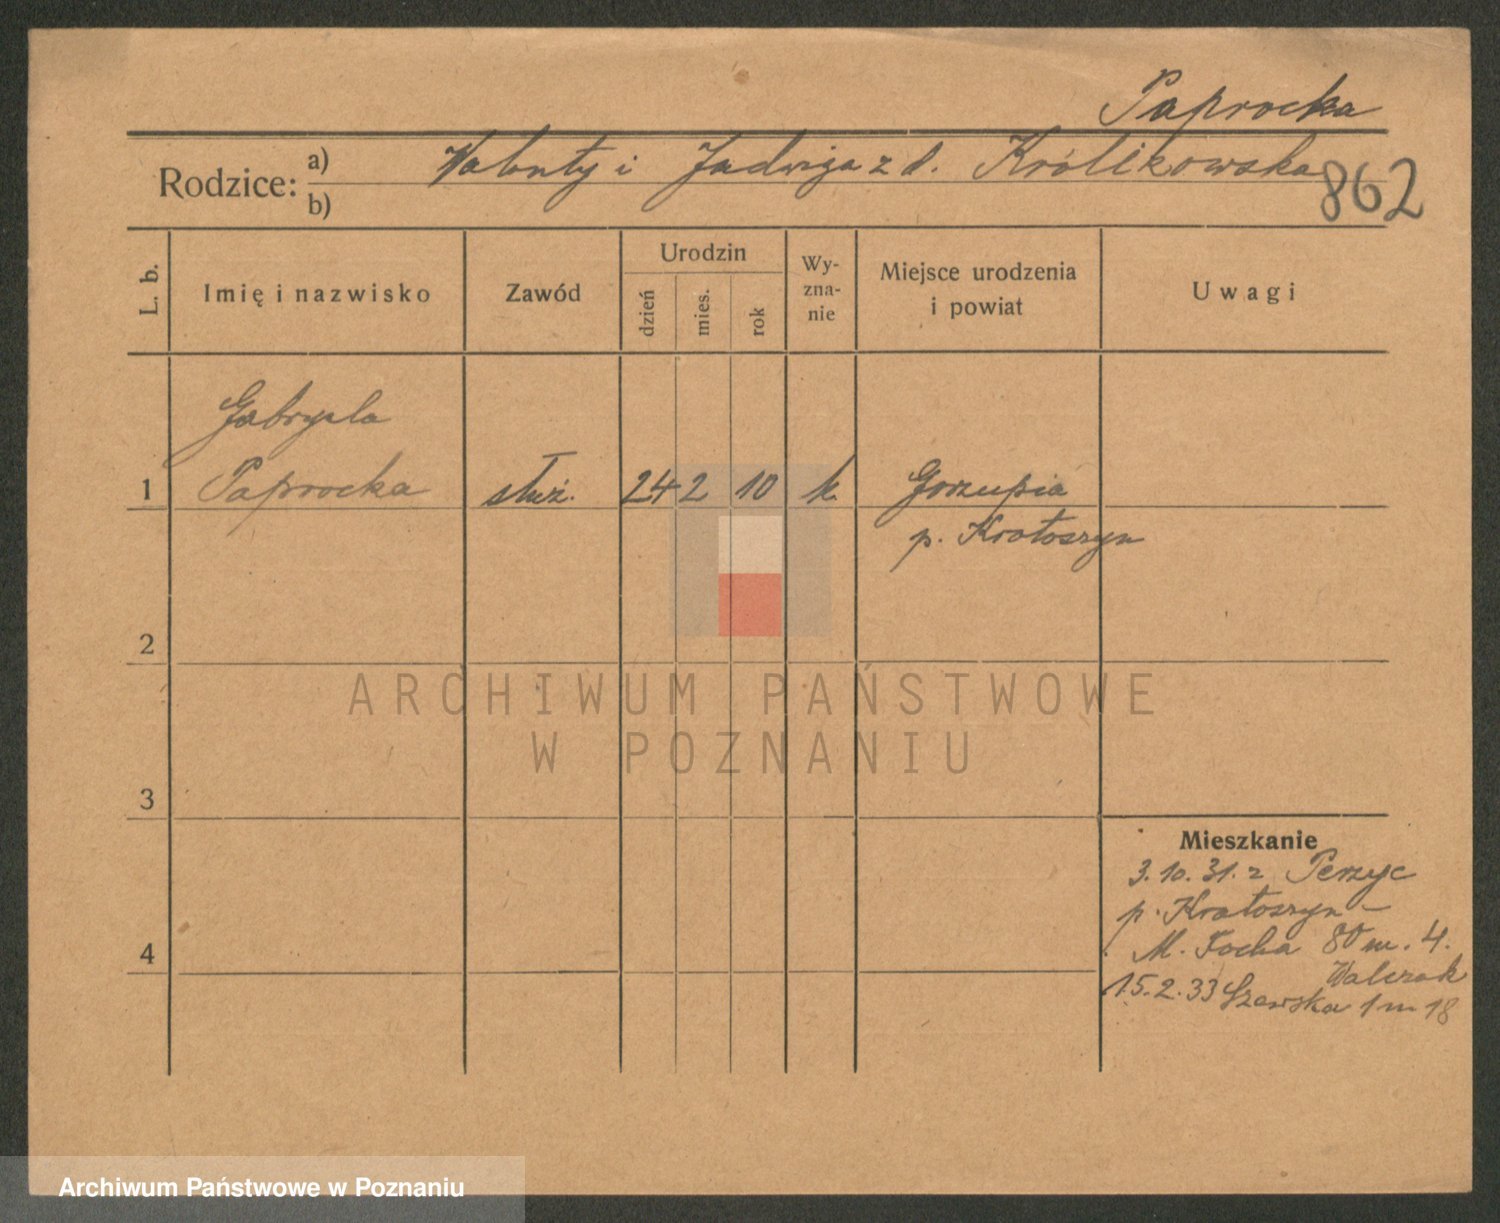 Paprocka
Rodzice: a) Walenty i Jadwiga z d. Królikowska
b)
862
L. b.
Imię i nazwisko
Zawód
Urodzin
dzień
mies.
rok
Wy-
zna-
nie
Miejsce urodzenia
i powiat
Uwagi
Gabryela
1 Paprocka służ. 24 2 10 k. Gorzupia
p. Krotoszyn
2
3
4
Mieszkanie
3.10.31. z Perzyc
p. Krotoszyn -
M. Focha 80 m. 4.
Walczak
15.2.33 Szewska 1 m 18
ARCHIWUM PAŃSTWOWE
W POZNANIU
Archiwum Państwowe w Poznaniu